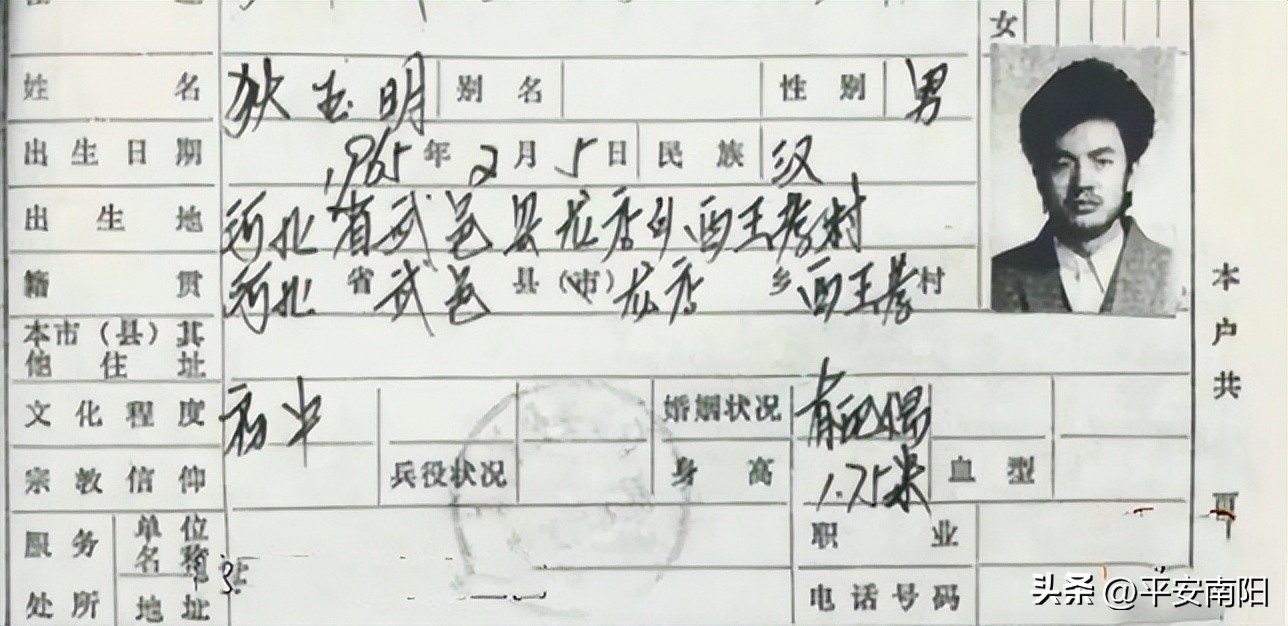 女
姓名 狄玉明 别名 性别 男
出生日期 1965年2月5日 民族 汉
出生地 河北省武邑县龙店乡西王孝村
籍贯 河北省武邑县(市)龙店乡西王孝村
本市(县)其他住址
文化程度 初中 婚姻状况 有配偶
宗教信仰 兵役状况 身高 1.75米 血型
服务处所 单位名称 职业
地址 电话号码
本户共 页
头条 @平安南阳